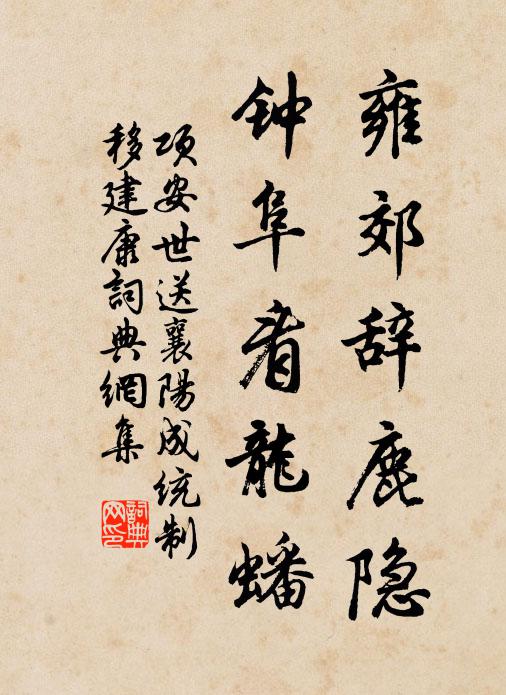 雍郊辞鹿隐
钟阜看龍蟠
项安世送襄陽成统制
移建康詞典網集
詞典网印